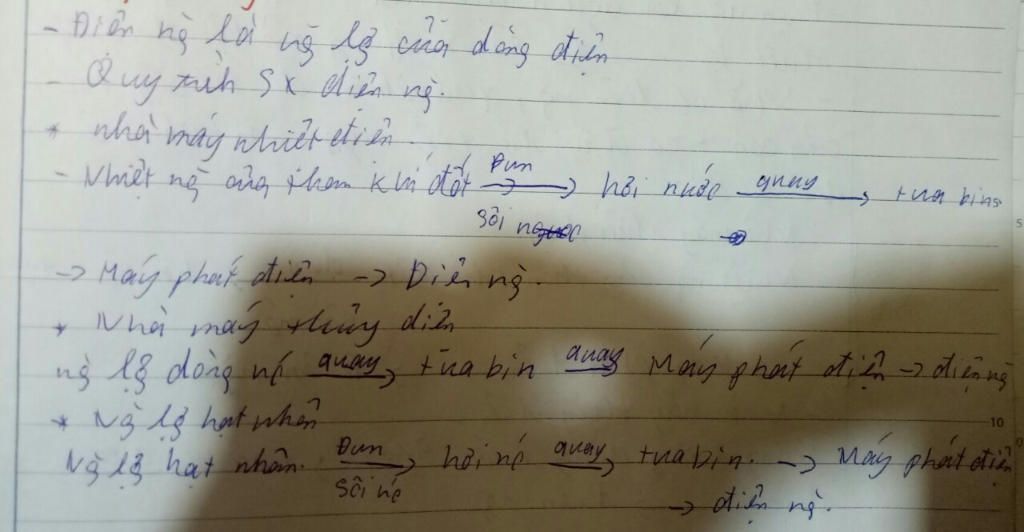 - Điện ng̀ là ng̀ lg̣ của dòng điện
- Quy trình SX điện ng̀.
* nhà máy nhiệt điện.
- Nhiệt ng̀ của than khi đốt Đun → hơi nước quay → tua bin
sôi
→ Máy phát điện → Điện ng̀.
* Nhà máy thủy điện
ng̀ lg̣ dòng nc quay → tua bin quay Máy phát điện → điện ng̀
* Ng̀ lg̣ hạt nhân
Ng̀ lg̣ hạt nhân. Đun → hơi nc quay → tua bin. → Máy phát điện
sôi nc
→ điện ng̀.